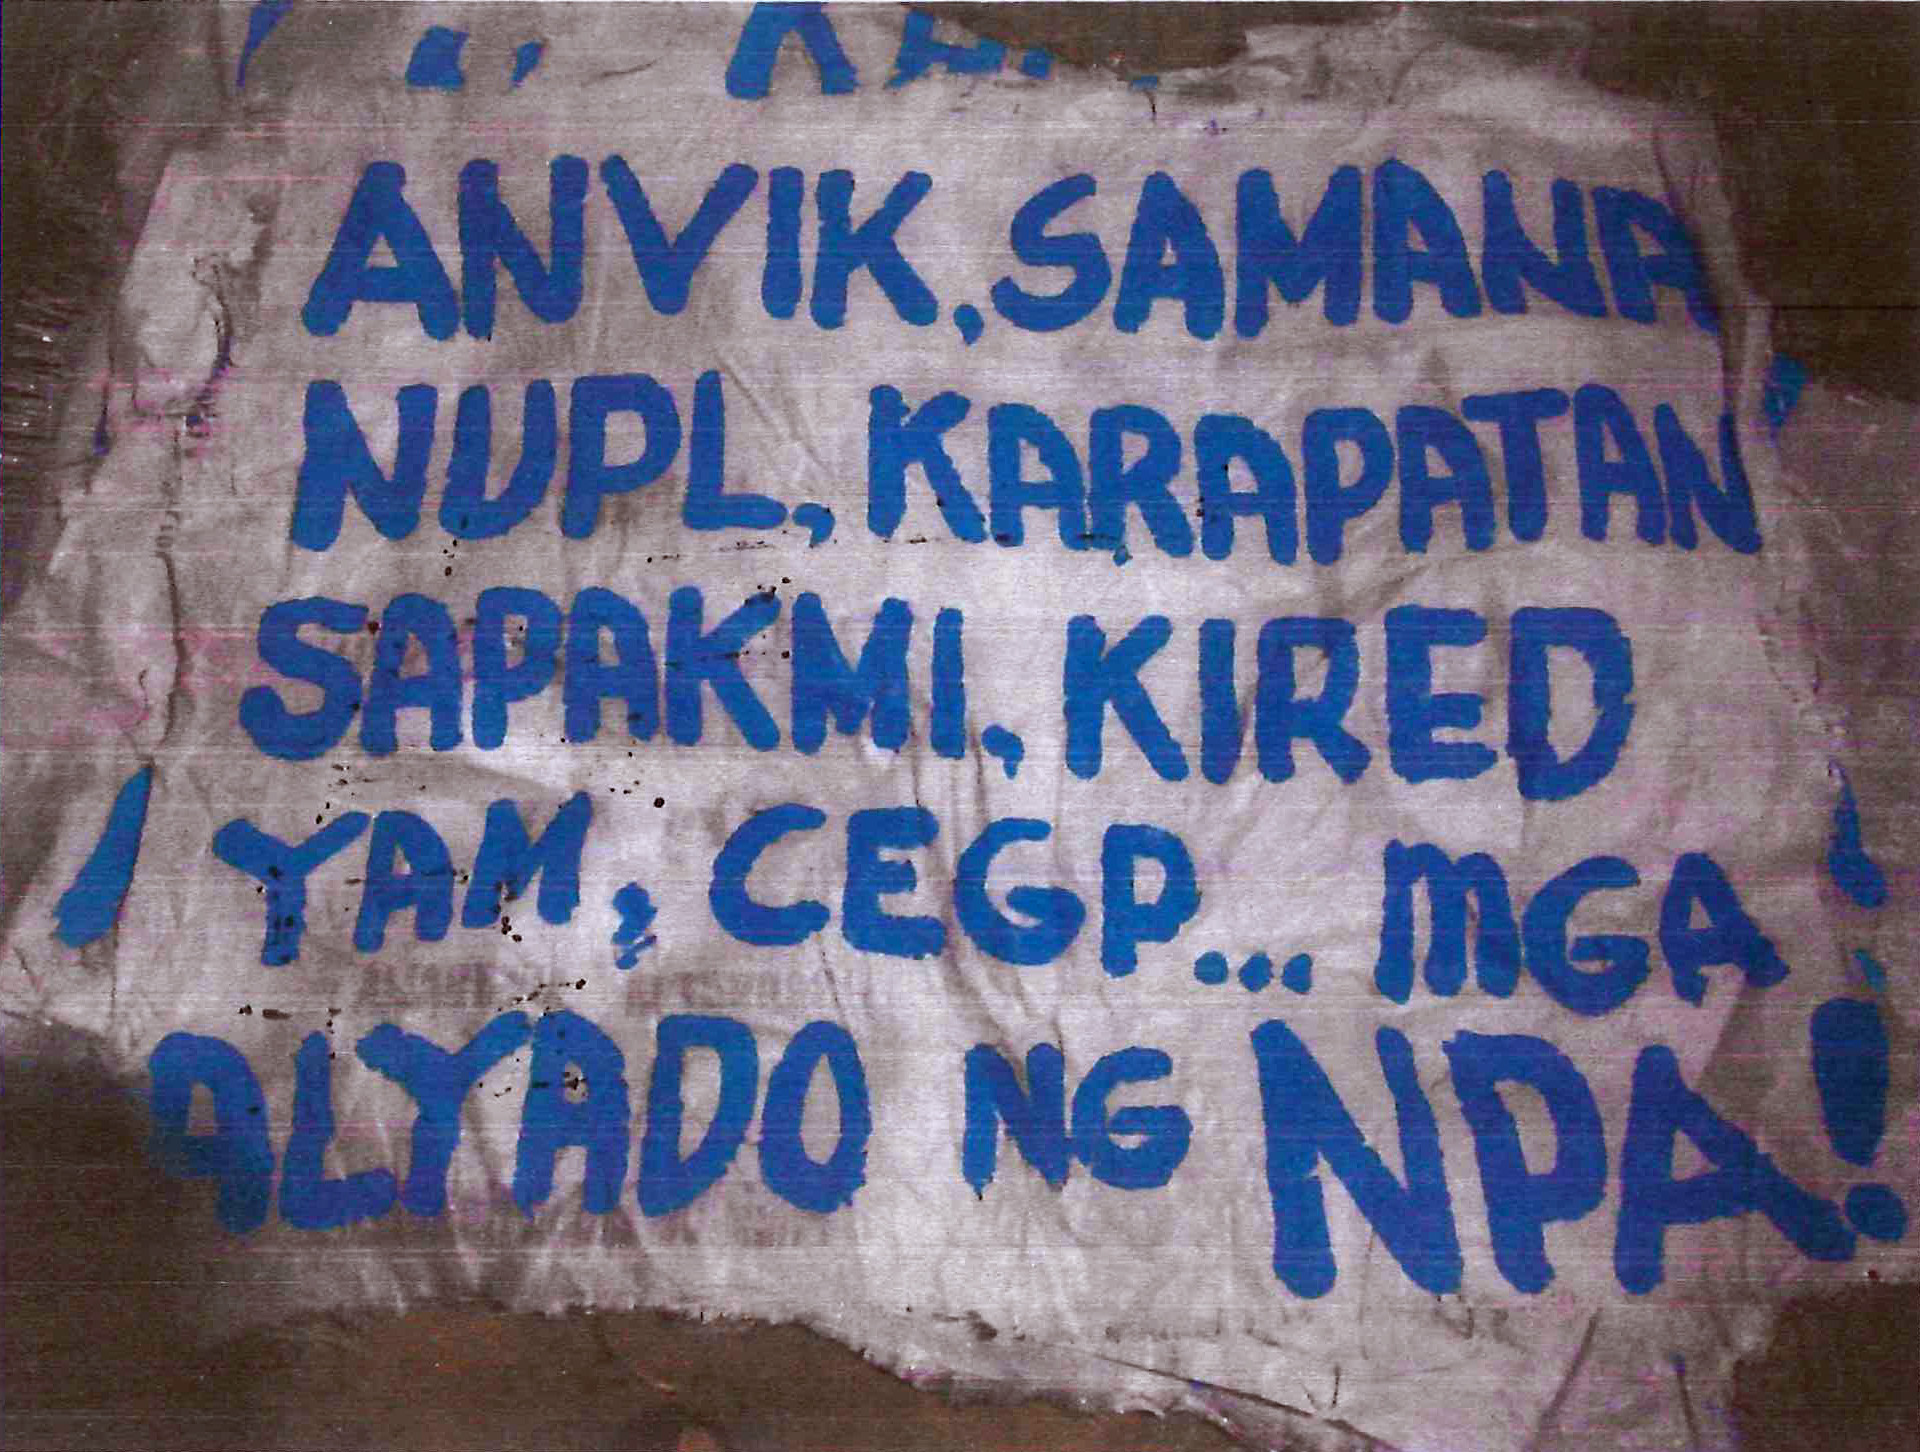 ANVIK, SAMANA
NUPL, KARAPATAN
SAPAKMI, KIRED
YAM, CEGP... MGA
ALYADO NG NPA!